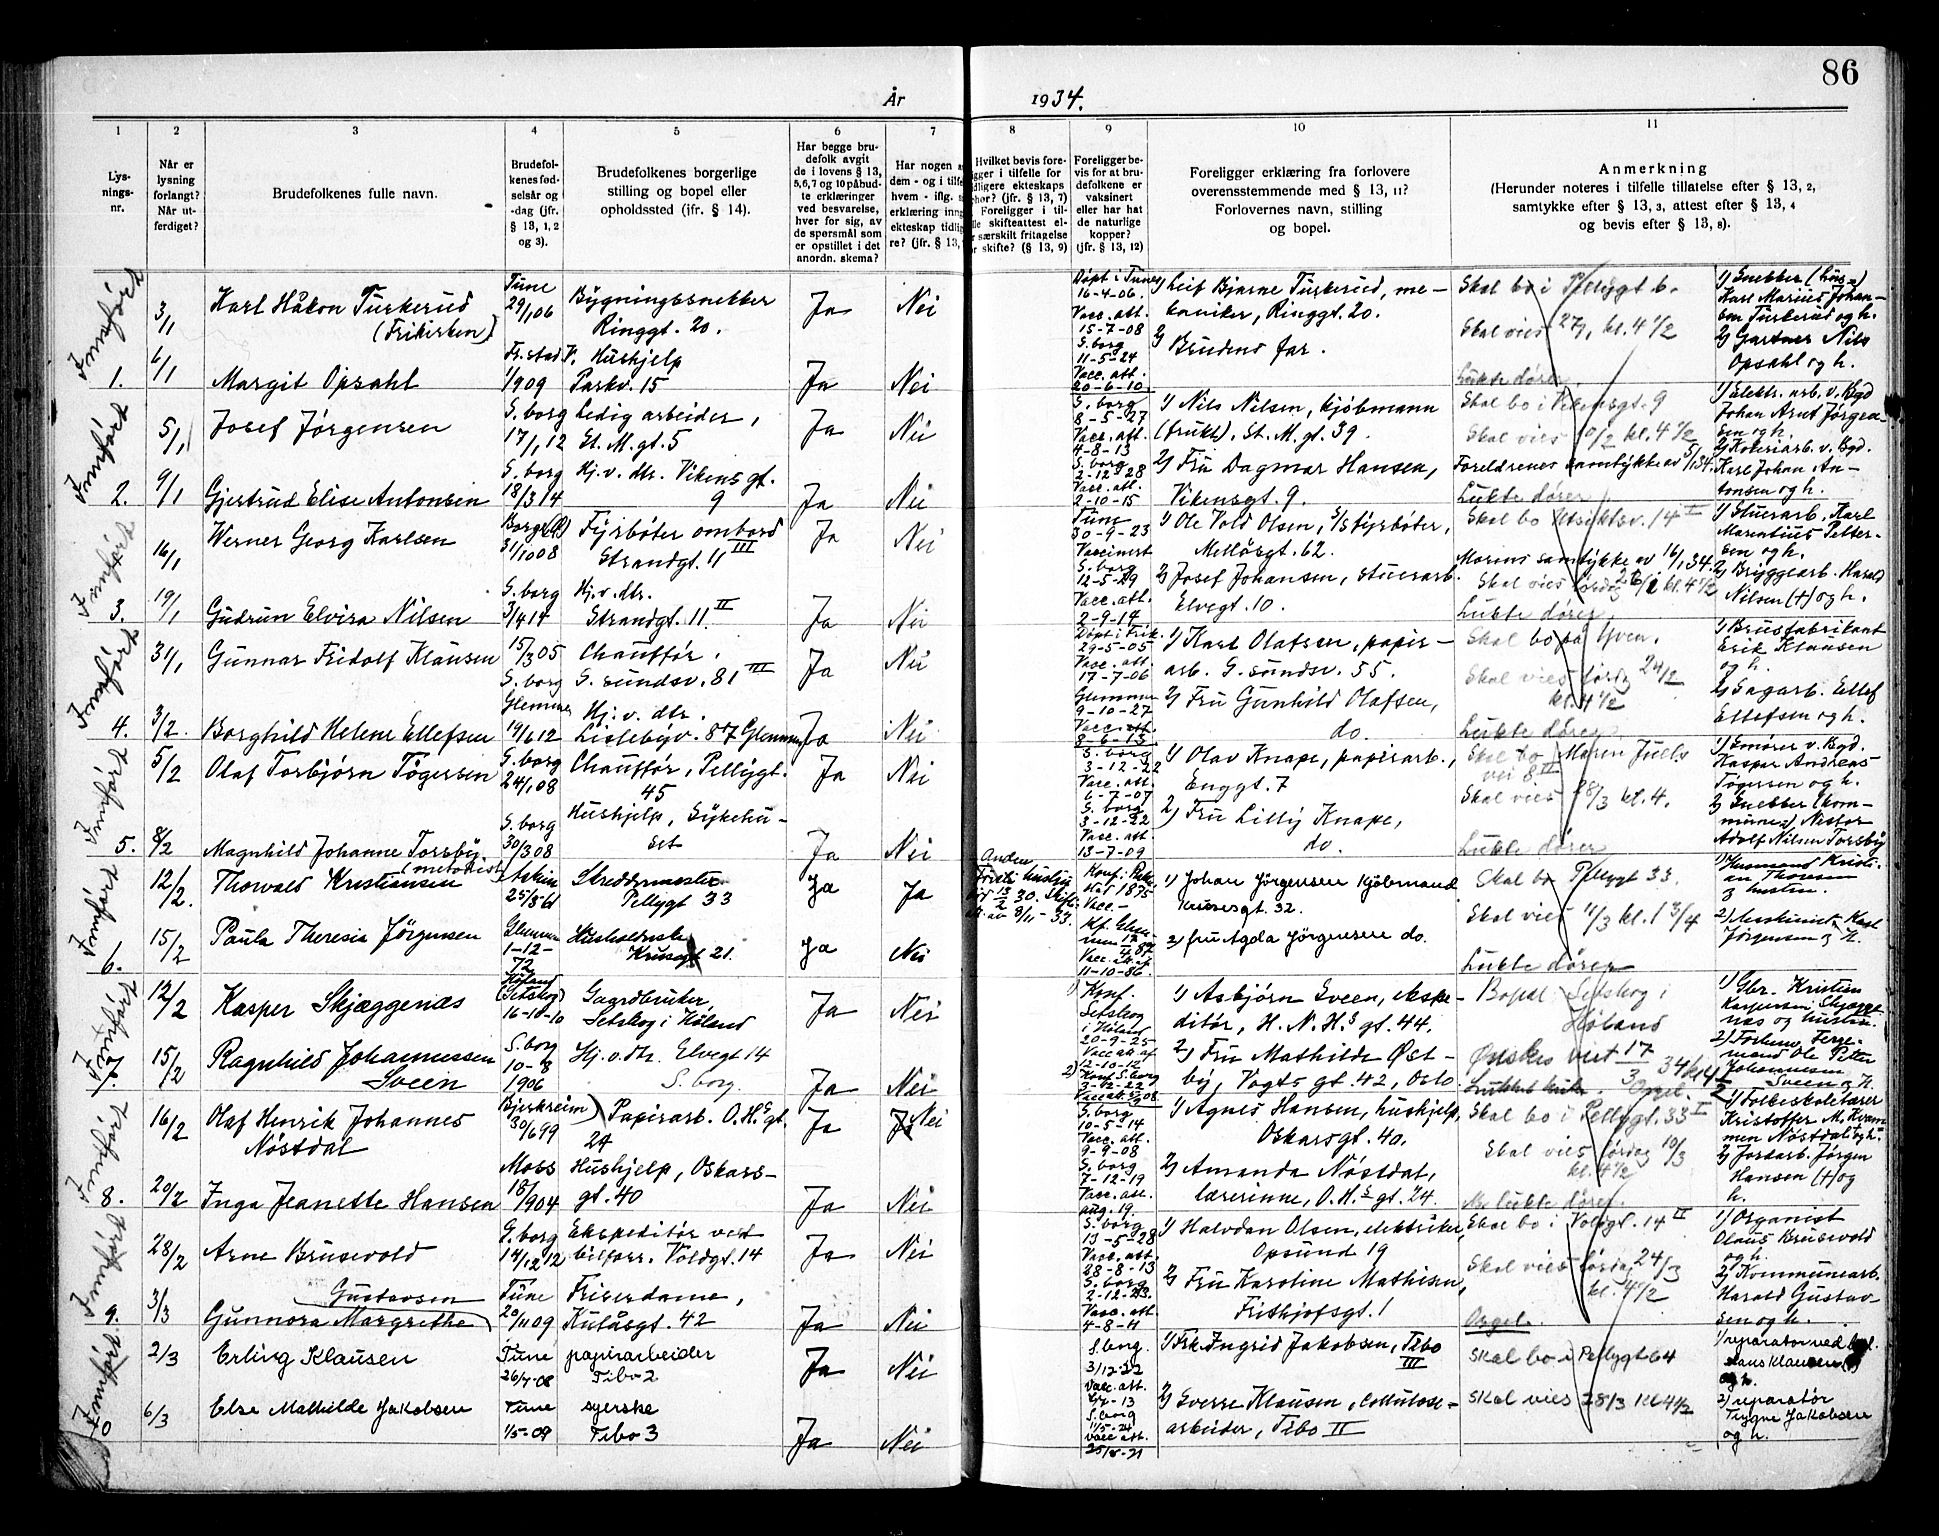 86
År 1934.
1 2 3 4 5 6 7 8 9 10 11
Lys-
nings-
nr.
Når er
lysning
forlangt?
Når ut-
ferdiget?
Brudefolkenes fulle navn.
Brudefol-
kenes fød-
selsår og
-dag (jfr.
§ 13, 1, 2
og 3).
Brudefolkenes borgerlige
stilling og bopel eller
opholdssted (jfr. § 14).
Har begge bru-
defolk avgit
de i lovens § 13,
5,6,7 og 10 påbud-
te erklæringer
ved besvarelse,
hver for sig, av
de spørsmål som
er opstillet i det
anordn. skema?
Har nogen a
dem - og i tilfe
hvem - iflg.
erklæring inng
ekteskap tidlig
re? (jfr. § 13,
Hvilket bevis fore-
gger i tilfelle for
dligere ekteskaps
hør? (jfr. § 13, 7)
Foreligger i til-
lle skifteattest el-
r særskilt fritagelse
r skifte? (§ 13, 9)
Foreligger be-
vis for at bru-
defolkene er
vaksinert
eller har hat
de naturlige
kopper?
(jfr. § 13, 12)
Foreligger erklæring fra forlovere
overensstemmende med § 13, 11?
Forlovernes navn, stilling
og bopel.
Anmerkning
(Herunder noteres i tilfelle tillatelse efter § 13, 2,
samtykke efter § 13, 3, attest efter § 13, 4
og bevis efter § 13, 8).
Innført
1.
3/1
Karl Håkon Turkerud
(Frikirken)
Tune
29/1 06
Bygningssnekker
Ringgt. 20.
Ja
Nei
6/1
Margit Opsahl
Fr.stad
1/9 09
V. Hushjelp
Parkv. 15
Ja
Nei
Døpt i Tune
16-4-06.
Vacc. att.
15-7-08
S. borg
11-5-24
Vacc. att.
20-6-10
1) Leif Bjarne Turkerud, me-
kaniker, Ringgt. 20.
2) Brudens far.
Skal bo i Pellygt 6.
Skal vies 27/1, kl. 4 1/2
Lukte dører.
1) Snekker
Karl Marius Johan-
sen Turkerud og h.
2) Gartner Nils
Opsahl og h.
Innført
2.
5/1
Josef Jørgensen
S. borg
17/1 12
Ledig arbeider,
St. M. gt. 5
Ja
Nei
9/1
Gjertrud Elise Antonsen
S. borg
18/3 14
Hj. v. dtr. Vikens gt.
9
Ja
Nei
S. borg
8-5-27
Vacc. att.
4-8-13
S. borg
2-12-28
Vacc. att.
2-10-15
1) Nils Nilsen, kjøbmann
(frukt), St. M. gt. 39.
2) Fru Dagmar Hansen,
Vikensgt. 9.
Skal bo i Vikensgt. 9
Skal vies 10/2 kl. 4 1/2
Foreldrenes samtykke av 5/1 34.
Lukte dører
1) Elektr. arb. v. Byd
Johan Arnt Jørgen-
sen og h.
2) Koleriarb. v. Byd.
Karl Johan An-
tonsen og h.
Innført
3.
16/1
Werner Georg Karlsen
Borge
31/10 08
Fyrbøter ombord
Strandgt. 11 III
Ja
Nei
19/1
Gudrun Elvira Nilsen
S. borg
3/4 14
Hj. v. dtr.
Strandgt. 11 II
Ja
Nei
Tune
30-9-23
Vaccinert
S. borg
12-5-29
Vacc. att.
2-9-14
1) Ole Vold Olsen, S/S fyrbøter,
Melløsgt. 62.
2) Josef Johansen, stuerarb.
Elvegt. 10.
Skal bo Utsiktsv. 14 II
Morens samtykke av 16/1 34.
Skal vies lørdag kl. 4 1/2
Lukte dører
1) Stuerarb. Karl
Marentius Petter-
sen og h.
2) Bryggearb. Harald
Nilsen (+) og h.
Innført
4.
31/1
Gunnar Fridolf Klausen
15/3 05
S. borg
Chauffør.
S. sundsv. 81 III
Ja
Nei
3/2.
Borghild Helene Ellefsen
Glemmen
19/6 12
Hj. v. dtr.
Lislebyv. 87 Glemmen
Ja
Nei
Døpt i Frik.
29-5-05
Vacc. att.
17-7-06
Glemmen
9-10-27
Vacc. att.
8-6-13
1) Karl Olafsen, papir-
arb. S. sundsv. 55.
2) Fru Gunhild Olafsen,
do.
Skal bo på Yven.
Skal vies lørdag 24/2
kl. 4 1/2
Lukte dører
1) Brusfabrikant
Erik Klausen
og h.
2) Sagarb. Ellef
Ellefsen og h.
Innført
5.
5/2
Olaf Torbjørn Tøgersen
S. borg
24/1 08
Chauffør, Pellygt.
45
Ja
Nei
8/2
Magnhild Johanne Torsby.
(metodist)
S. borg
30/3 08
Hushjelp, Sykehu-
set
Ja
Nei
S. borg
3-12-22
Vacc. att.
6-7-07
S. borg
3-12-22
Vacc. att.
13-7-09
1) Olav Knape, papirarb.,
Enggt. 7
2) Fru Lilly Knape,
do.
Skal bo Maren Juels
vei 8 II
Skal vies 28/3 kl. 4.
Lukte dører
1) Smører v. Byd.
Kaspar Andreas
Tøgersen og h.
2) Snekker (kom-
mune) Nestor
Adolf Nilsen Torsby
Innført
6.
12/2.
Thorvald Kristiansen
Askim
25/8 61
Skreddermester
Pellygt 33
Ja
Ja
15/2
Paula Theresia Jørgensen
Glemmen
1-12-
72
Husholdnske
Krusegt 21.
Ja
Nei
Vacc. -
Vacc. att. af
11-10-86
1) Johan Jørgensen Kjøbmand
Krusesgt. 32.
2) fru Agda Jørgensen do.
Skal bo Pellygt 33.
Skal vies 11/3 kl. 1 3/4
Lukte dører
1) Husmand Kristi-
an Thoresen
& hustru.
2) Maskinist Karl
Jørgensen & H.
Innført
7.
12/2
Kasper Skjæggenæs
Høland
(Setskog)
16-10-10
Gaardbruker
Setskog i Høland
Ja
Nei
15/2
Ragnhild Johannessen
Sveen
S. borg
10-8
1906
Hj. v. dtr. Elvegt 14
S. borg.
Ja
Nei
1) Konf.
Setskog
i Høland
20-9-25
Vacc att. af
12-10-12
2) Konf S. borg
3-12-22
1) Asbjørn Sveen, ekspe-
ditør, H. N. H.s gt. 44.
2) Fru Mathilde Øst-
by, Vogts gt. 42, Oslo
Bopæl Setskog i
Høland
Ønskes viet 17/3 34 kl 4 1/2
Orgel.
1) Gbr. Kristian
Kaspersen Skjægge-
næs og hustru.
2) Forhenv. Ferge-
mand Ole Petter
Johannessen
Sveen & H.
Innført
8.
16/2
Olaf Henrik Johannes
Nøstdal
Bjerkreim
30/6 99
Papirarb. O. H.s gt.
24
Ja
Nei
20/2
Inga Jeanette Hansen
Moss
18/9 04
Hushjelp, Oskars-
gt. 40
Ja
Nei
S. borg
10-5-14
Vacc. att.
9-9-08
S. borg
7-12-19
Vacc. att.
aug. 19.
1) Agnes Hansen, hushjelp,
Oskarsgt. 40.
2) Amanda Nøstdal,
lærerinne, O. H.s gt. 24.
Skal bo i Pellygt. 33 I
Skal vies lørdag 10/3
kl. 4 1/2
lukte dører.
1) Folkeskolelærer
Kristoffer M. Kvam-
men Nøstdal og h.
2) Jordarb. Jørgen
Hansen (+) og
h.
Innført
9.
28/2
Arne Brusevold
S. borg
14/12 12
Ekspeditør ved
bilforr. Voldgt. 14
Ja
Nei
3/3
Gustavsen
Gunnora Margrethe
Tune
20/11 09
Friserdame,
Kulåsgt. 42
Ja
Nei
S. borg
13-5-28
Vacc. att.
28-8-13
S. borg
2-12-23.
Vacc. att.
4-8-11
1) Halvdan Olsen, elektriker,
Opsund 19
2) Fru Karoline Mathisen,
Frithjofsgt. 1
Skal bo i Voldgt. 14 II
Skal vies lørdag 24/3
kl. 4 1/2
Orgel.
1) Organist
Olaus Brusevold
og h.
2) Kommunearb.
Harald Gustav-
sen og h.
Innført
10
2/3
Erling Klausen
Tune
26/7-08
papirarbeider
Tibo 2
Ja
Nei
6/3
Else Mathilde Jakobsen
Tune
1/5-09
syerske
Tibo 3
Ja
Nei
S. borg.
3/12-22
Vacc. att.
S. borg
11/5-24
vacc att.
25/8-21
1) Frk Ingrid Jakobsen, Tibo
III
2) Sverre Klausen, cellulose-
arbeider, Tibo II
Skal bo i Pellygt 64
Skal vies 28/3 kl 4 1/2
1) reparatør ved
Hans Klausen (+)
og h.
2) reparatør
Trygve Jakobsen
og h.